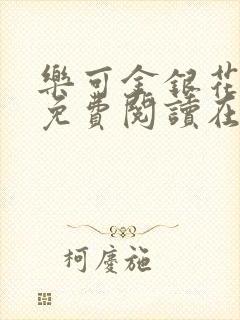 樂可金銀花
免費閱讀在
柯慶施